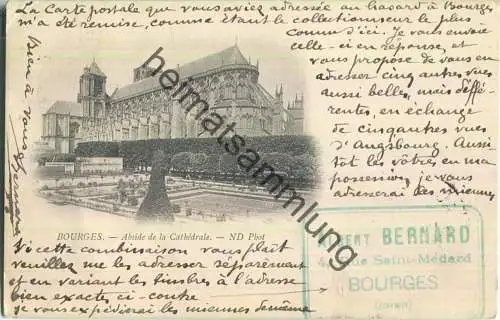 La Carte postale que vous aviez adressée au hasard à Bourges
m'a été remise, comme étant le collectionneur le plus
connu d'ici. Je vous envoie
celle-ci en réponse, et
vous propose de vous en
adresser cinq autres vues
aussi belles, mais diffé-
rentes, en échange
de cinq autres vues
d'Augsbourg. Aussi-
tôt les vôtres en ma
possession, je vous
adresserai les miennes
Bien à vous
ABernard
heimatsammlung.de
BOURGES. - Abside de la Cathédrale. - ND Phot
Si cette combinaison vous plaît
veuillez me les adresser séparément
et en variant les timbres à l'adresse
bien exacte ci-contre
je vous expédierai les miennes de même
ALBERT BERNARD
4, Rue Saint-Médard
BOURGES